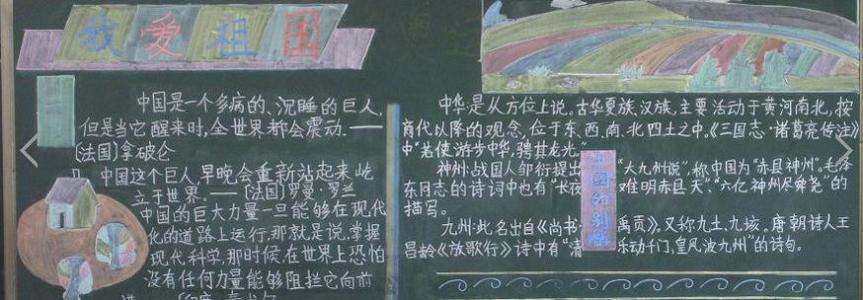 我爱祖国
中国是一个多病的、沉睡的巨人,
但是当它醒来时,全世界都会震动.——
(法国)拿破仑
中国这个巨人,早晚会重新站起来屹
立于世界.——(法国)罗曼·罗兰
中国的巨大力量一旦能够在现代
化的道路上运行,那就是说,掌握
现代科学,那时候,在世界上恐怕
没有任何力量能够阻拦它向前
中华:是从方位上说。古华夏族、汉族,主要活动于黄河南北,按
商代以降的观念,位于东、西、南、北四土之中。《三国志·诸葛亮传注》
中"若使游步中华,骋其龙光。"
神州:战国人邹衍提出"大九州说",称中国为"赤县神州"。毛泽
东同志的诗词中也有"长夜难明赤县天"、"六亿神州尽舜尧"的
描写。
中国的别称
九州:此名出自《尚书 禹贡》。又称九土、九垓。唐朝诗人王
昌龄《放歌行》诗中有"清乐动千门,皇风波九州"的诗句。